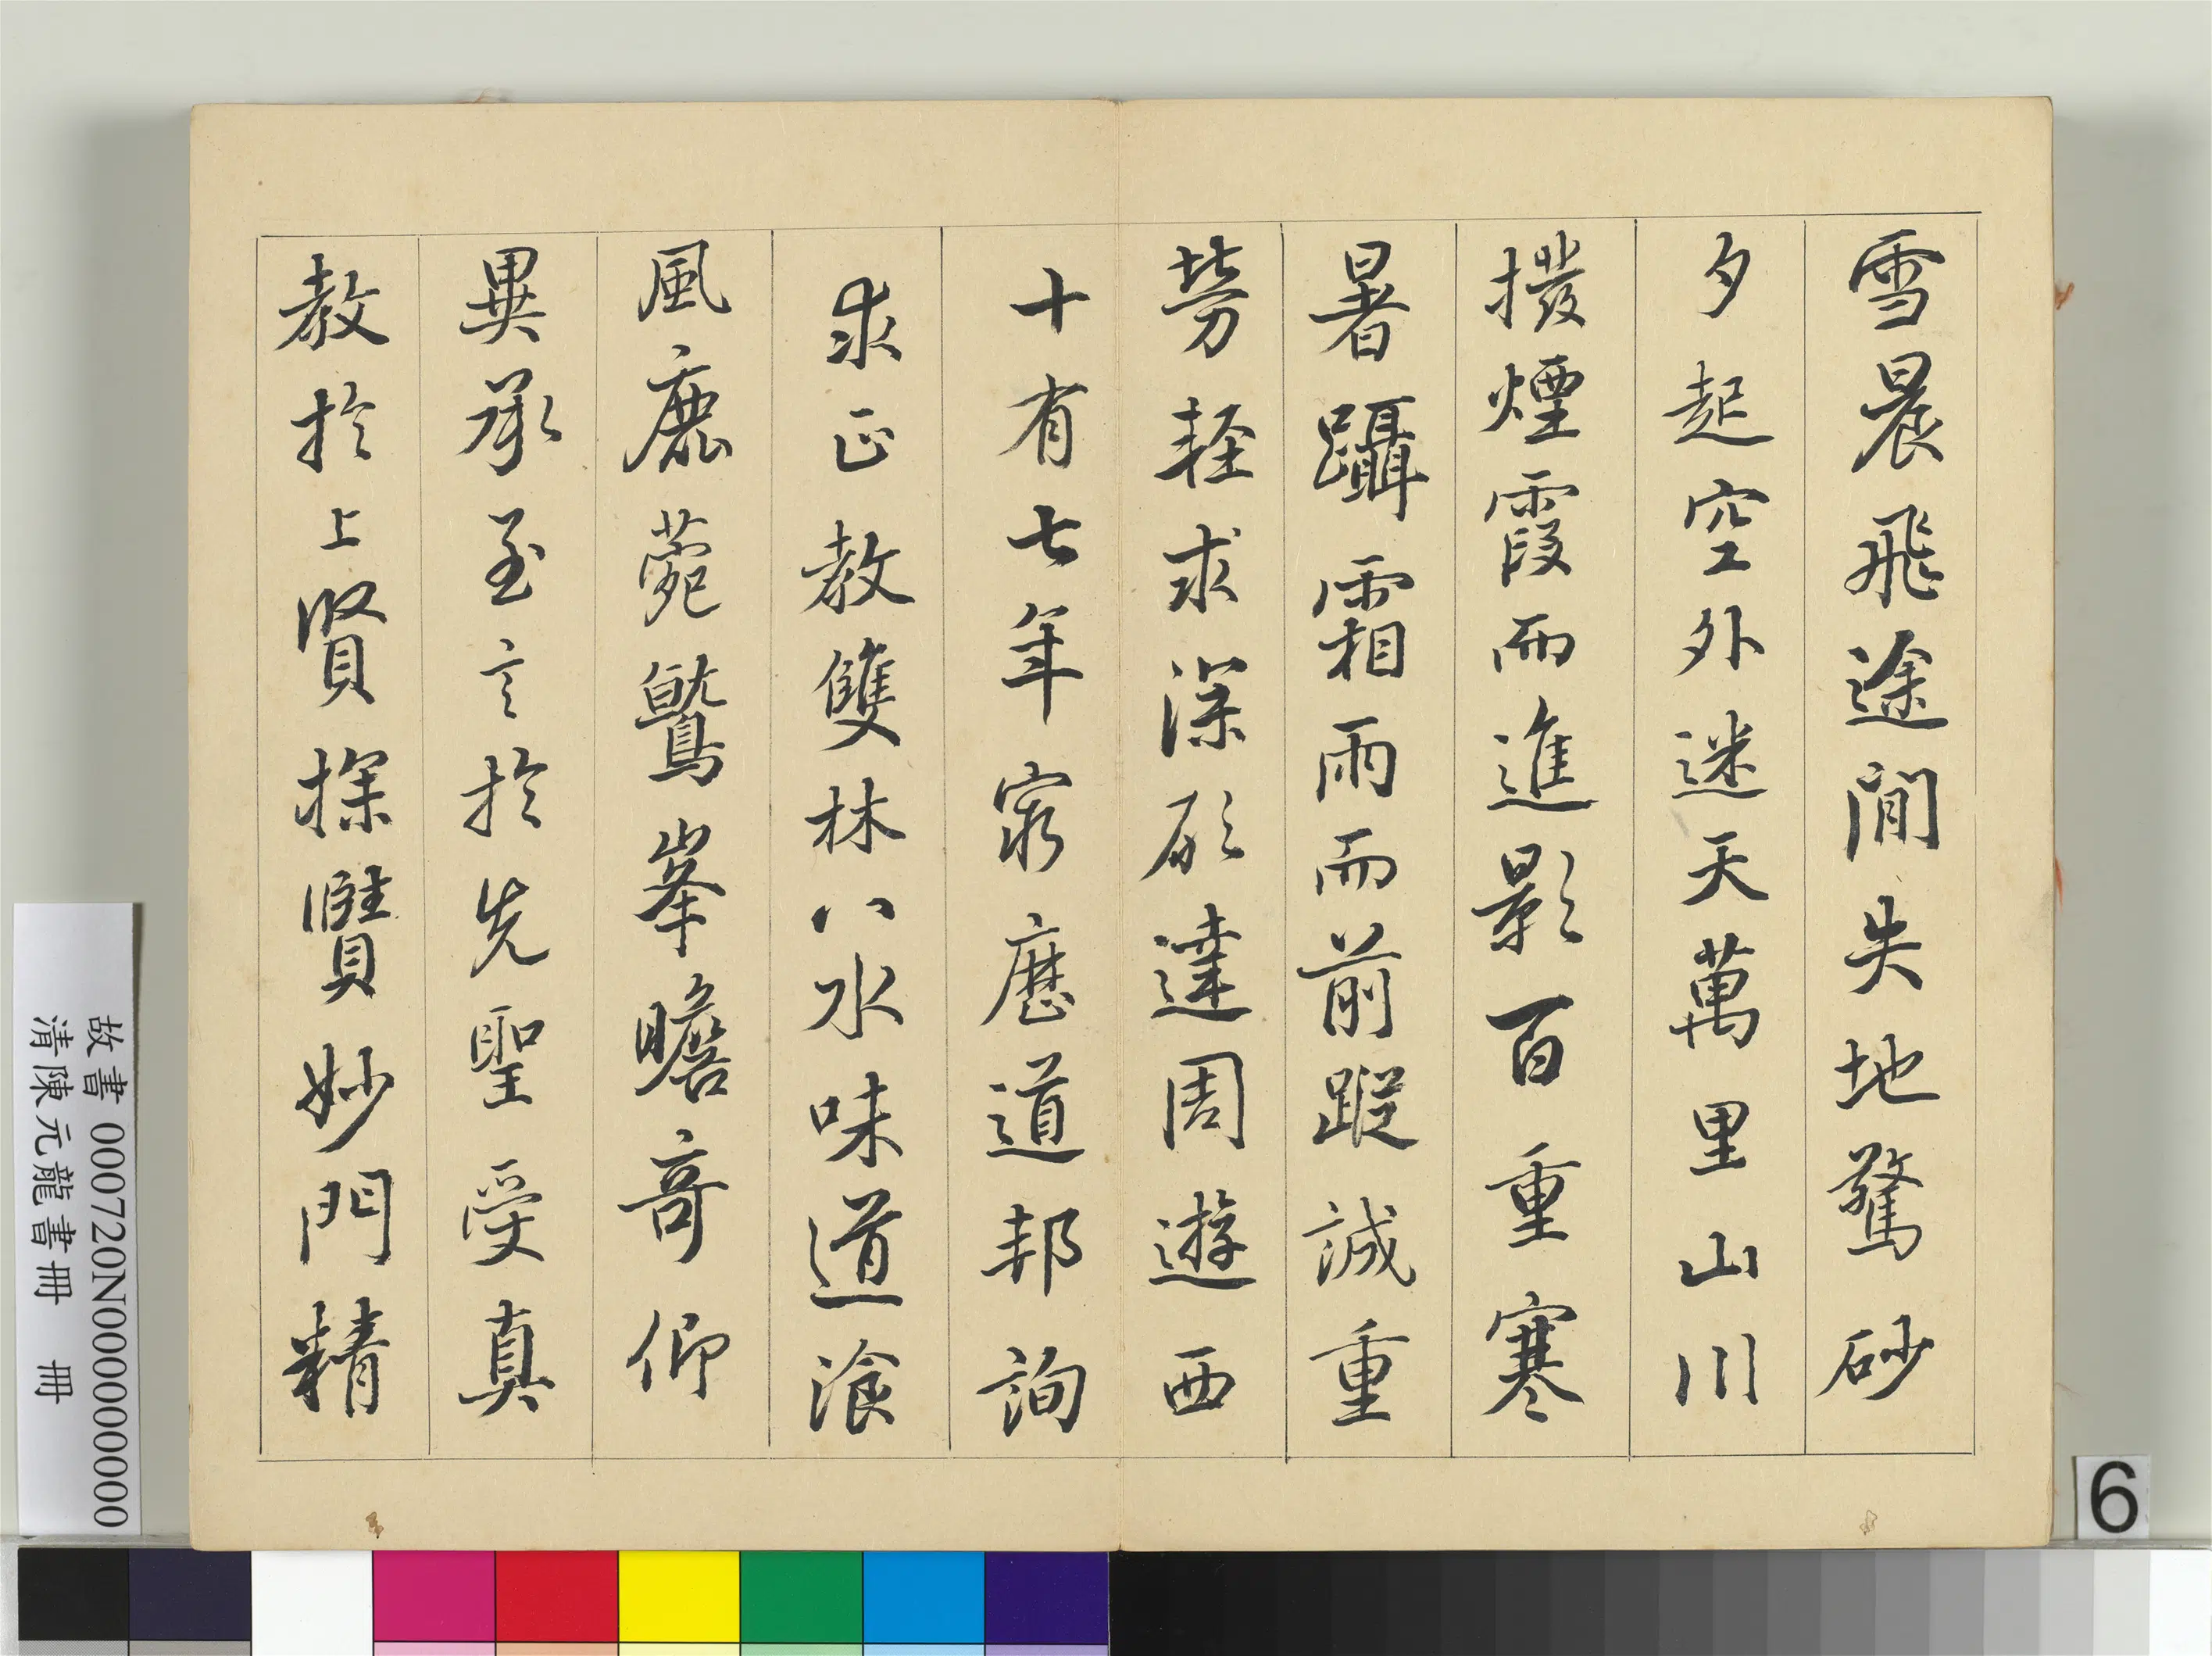 雪晨飛途閒失地驚砂
夕起空外迷天萬里山川
撥煙霞而進影百重寒
暑躡霜雨而前蹤誠重
勞輕求深願達周遊西
十有七年窮歷道邦詢
求正教雙林八水味道飡
風鹿菀鷲峯瞻奇仰
異承至言於先聖受真
教於上賢探賾妙門精
故書 000720N000000000
清陳元龍書冊 冊
6